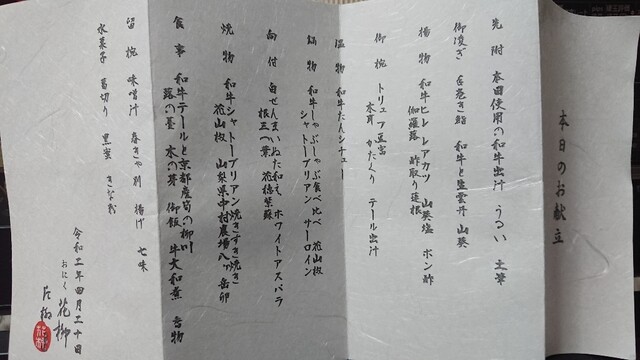 本日のお献立
先附 本日使用の和牛出汁 うるい 土筆
御凌ぎ 手巻き鮨 和牛と生雲丹 山葵
揚物 和牛ヒレ レアカツ 山葵塩 ポン酢
伽羅蕗 酢取り蓮根
御椀 トリュフ豆富
木耳 かたくり テール出汁
温物 和牛たんシチュー
鍋物 和牛しゃぶしゃぶ食べ比べ 花山椒
シャトーブリアン サーロイン
向付 白ぜんまいぬた和え ホワイトアスパラ
根三つ葉 花穂紫蘇
焼物 和牛シャトーブリアン焼きすき焼き
花山椒 山梨県中村農場八ヶ岳卵
食事 和牛テールと京都産筍の柳川
蕗の薹 木の芽 御飯 牛大和煮 香物
留椀 味噌汁 春きゃ別 揚げ 七味
水菓子 葛切り 黒蜜 きな粉
令和 年四月二十日
おにく 花柳
片柳